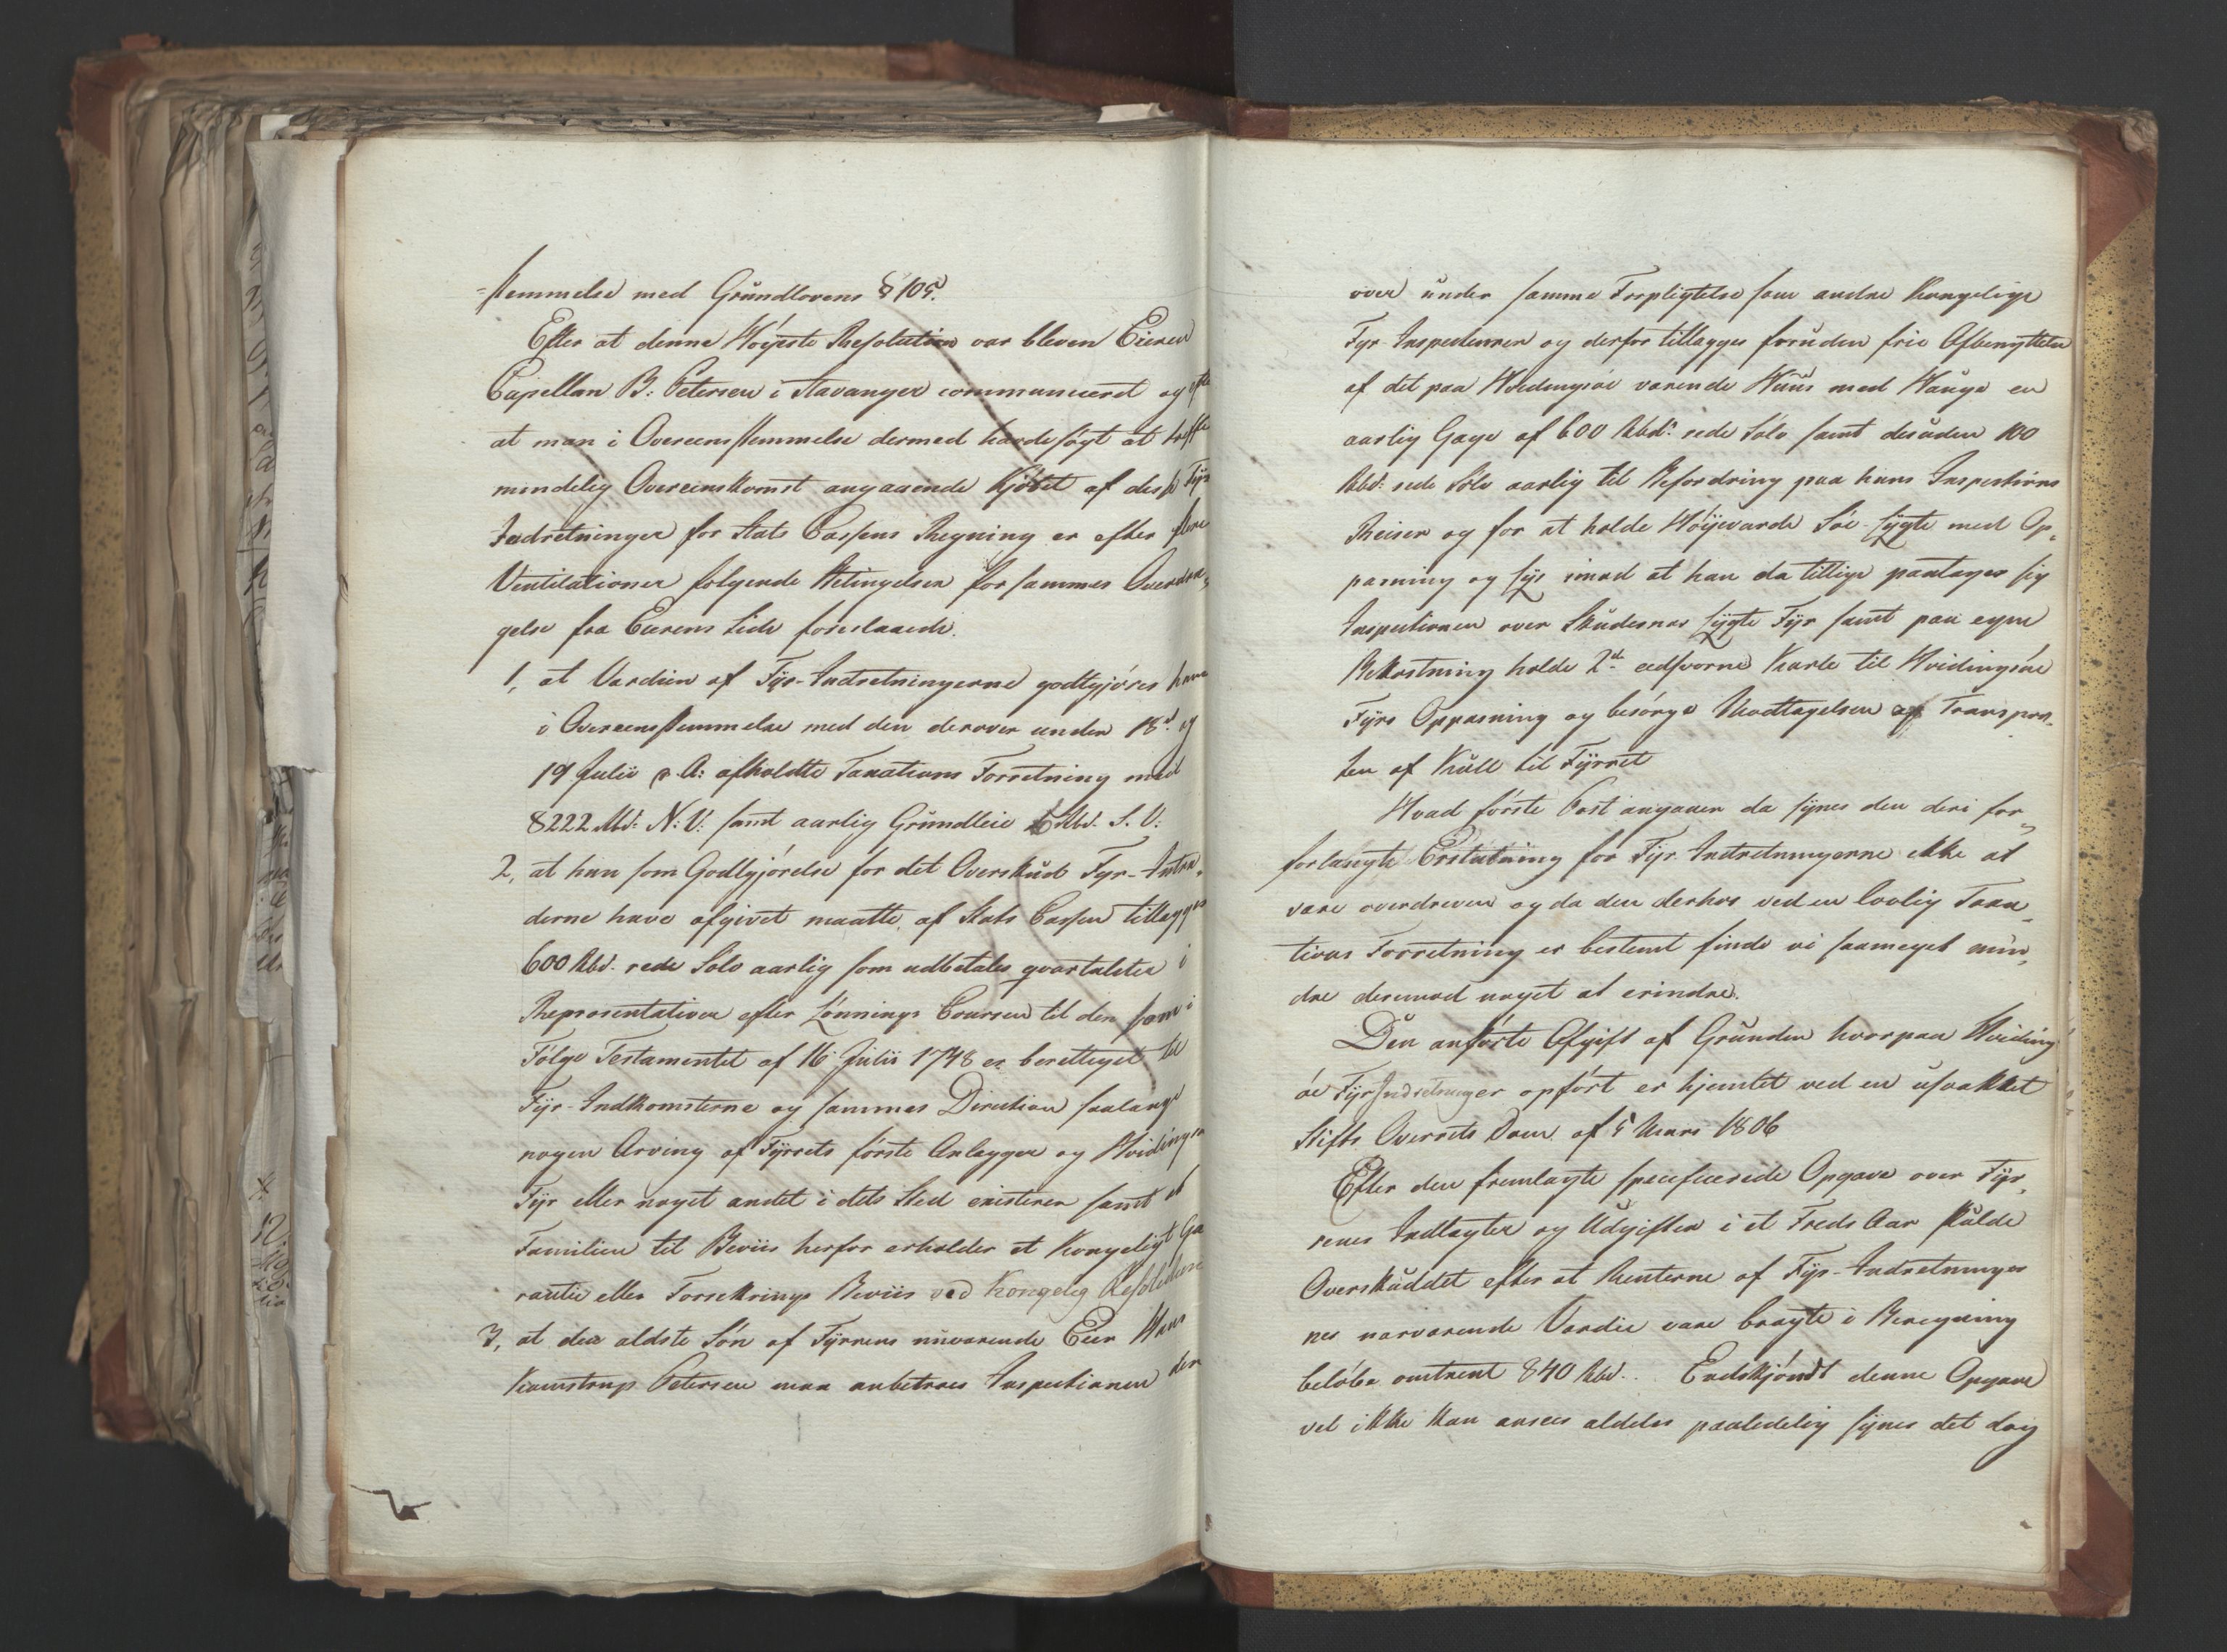 =stemmelse med Grundlovens § 105.
Efter at denne Høyeste Resolution var bleven Eieren
Capellan B: Petersen i Stavanger communiceret og efter
at man i Overeensstemmelse dermed havde søgt at træffe
mindelig Overeenskomst angaaende Kjøbet af disse Fyr
Indretninger for Stats Cassens Regning er efter flere
Ventilationer følgende Betingelser for sammes Overdra„
gelse fra Eierens Side foreslaaede.
1, at Værdien af Fyr-Indretningerne godtgjøres ham
i Overeensstemmelse med den derover under 18d og
19 Julii d. A: afholdte Taxations Forretning med
8222 Rbd: N: V: samt aarlig Grundleie 6 Rbd. S. V:
2, at han som Godtgjørelse for det Overskud Fyr-Intra„
derne have afgivet maatte af Stats Cassen tillægges
600 Rbd. rede Sølv aarlig som udbetales qvartaliter i
Repræsentativer efter Lønnings Coursen til den som i
Følge Testamentet af 16 Julii 1748 er berettiget til
Fyr-Indkomsterne og sammes Direction saalænge
nogen Arving af Fyrrets første Anlægger og Hvidingsøe
Fyr eller noget andet i dets Sted existerer samt at
Familien til Beviis herfor erholder et Kongeligt Ga
rantie eller Forsikrings Beviis ved Kongelig Resolution
3, at den ældste Søn af Fyrrenes nuværende Eier Hans
Kamstrup Petersen maa anbetroes Inspectionen der
over under samme Forpligtelse som andre Kongelige
Fyr-Inspecteurer og derfor tillægges foruden frie Afbenyttelse
af det paa Hvidingsøe værende Huus med Hauge en
aarlig Gage af 600 Rbd: rede Sølv samt desuden 100
Rbd: rede Sølv aarlig til Befordring paa hans Inspections
Reiser og for at holde Høyevarde Søe-Lygte med Op„
pasning og Lys imod at han da tillige paatager sig
Inspectionen over Skudesnæs Lygte Fyr samt paa egen
Bekostning holde 2de eedsvorne Karle til Hvidingsøe
Fyrs Oppasning og besørge Modtagelsen af Transpor„
ten af Kull til Fyrret
Hvad første Post angaaer da synes den deri for„
forlangte Erstatning for Fyr Indretningerne ikke at
være overdreven og da den derhos ved en lovlig Taxa„
tions Forretning er bestemt finde vi saameget min„
dre derimod noget at erindre.
Den anførte Afgift af Grunden hvorpaa Hviding
øe Fyr Indretninger opført er hjemlet ved en upaakket
Stifts Overrets Dom af 5 Mars 1806
Efter den fremlagte specificerede Opgave over Fyr„
renes Indtægter og Udgifter i et Freds Aar skulde
Overskuddet efter at Renterne af Fyr-Indretninger
nes nærværende Værdie vare bragte i Beregning
beløbe omtrent 840 Rbd. Endskjøndt denne Opgave
vel ikke kan ansees aldeles paalidelig synes det dog